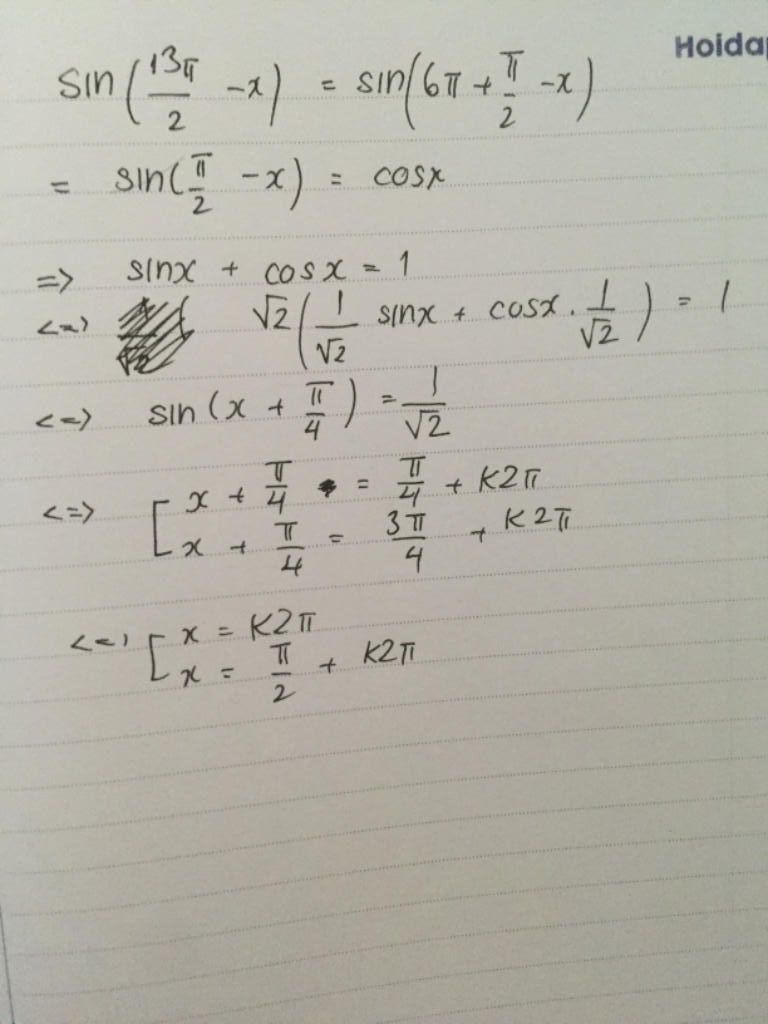 Hoidap
sin(13π/2 -x) = sin(6π + π/2 -x)
= sin(π/2 -x) = cosx
=> sinx + cosx = 1
<=> √2(1/√2 sinx + cosx . 1/√2) = 1
<=> sin(x + π/4) = 1/√2
<=> [ x + π/4 = π/4 + K2π
x + π/4 = 3π/4 + K2π
<=> [ x = K2π
x = π/2 + K2π